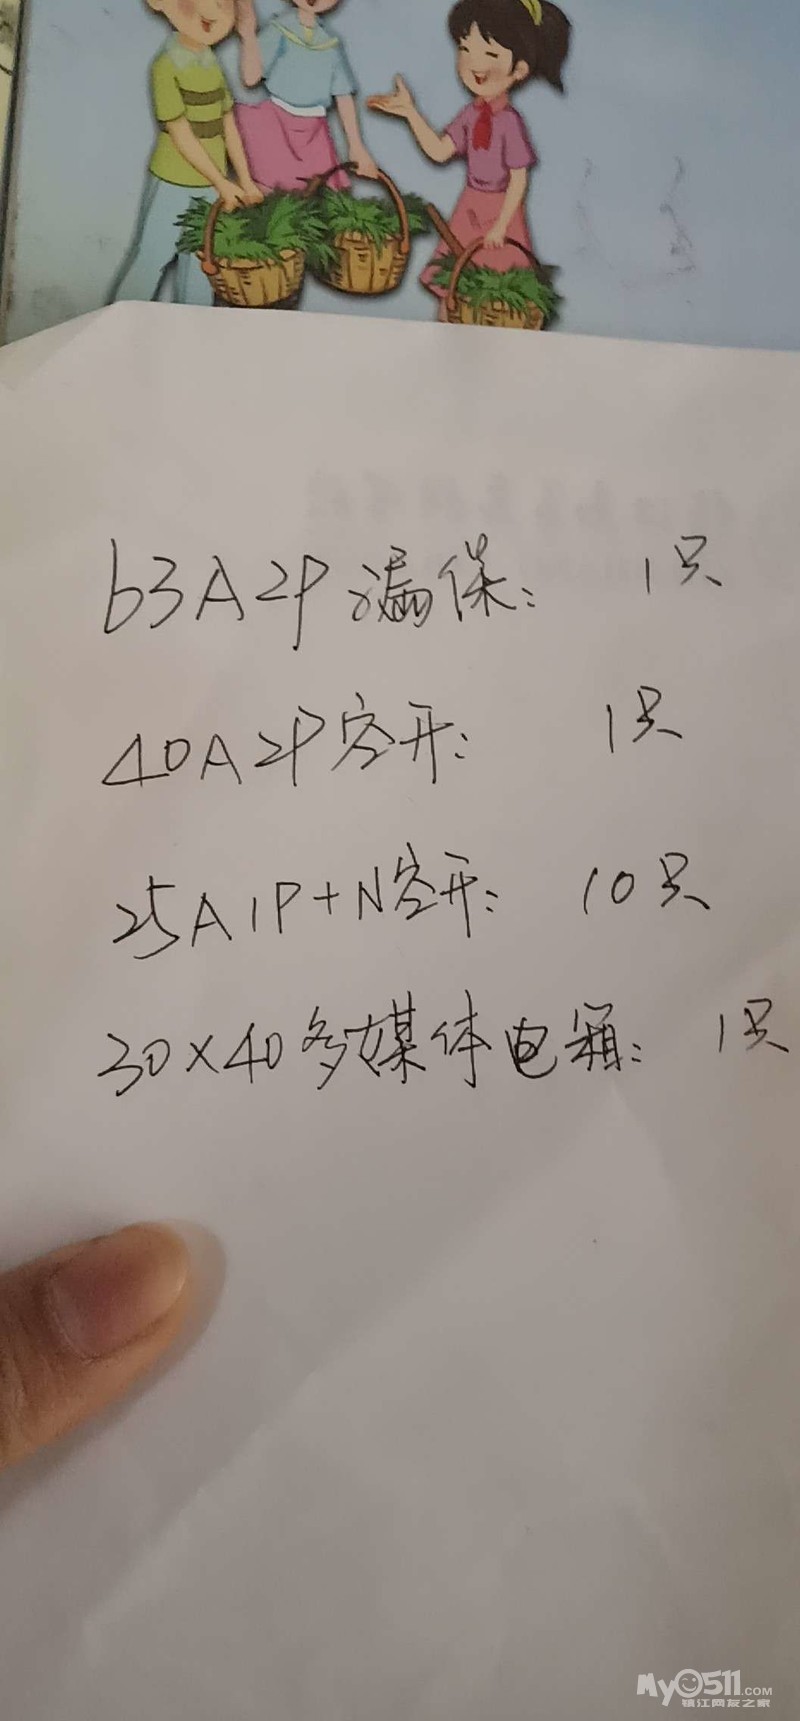 63A2P漏保： 1只
40A2P空开： 1只
25A1P+N空开： 10只
30×40多媒体电箱： 1只
My0511.COM
镇江网友之家